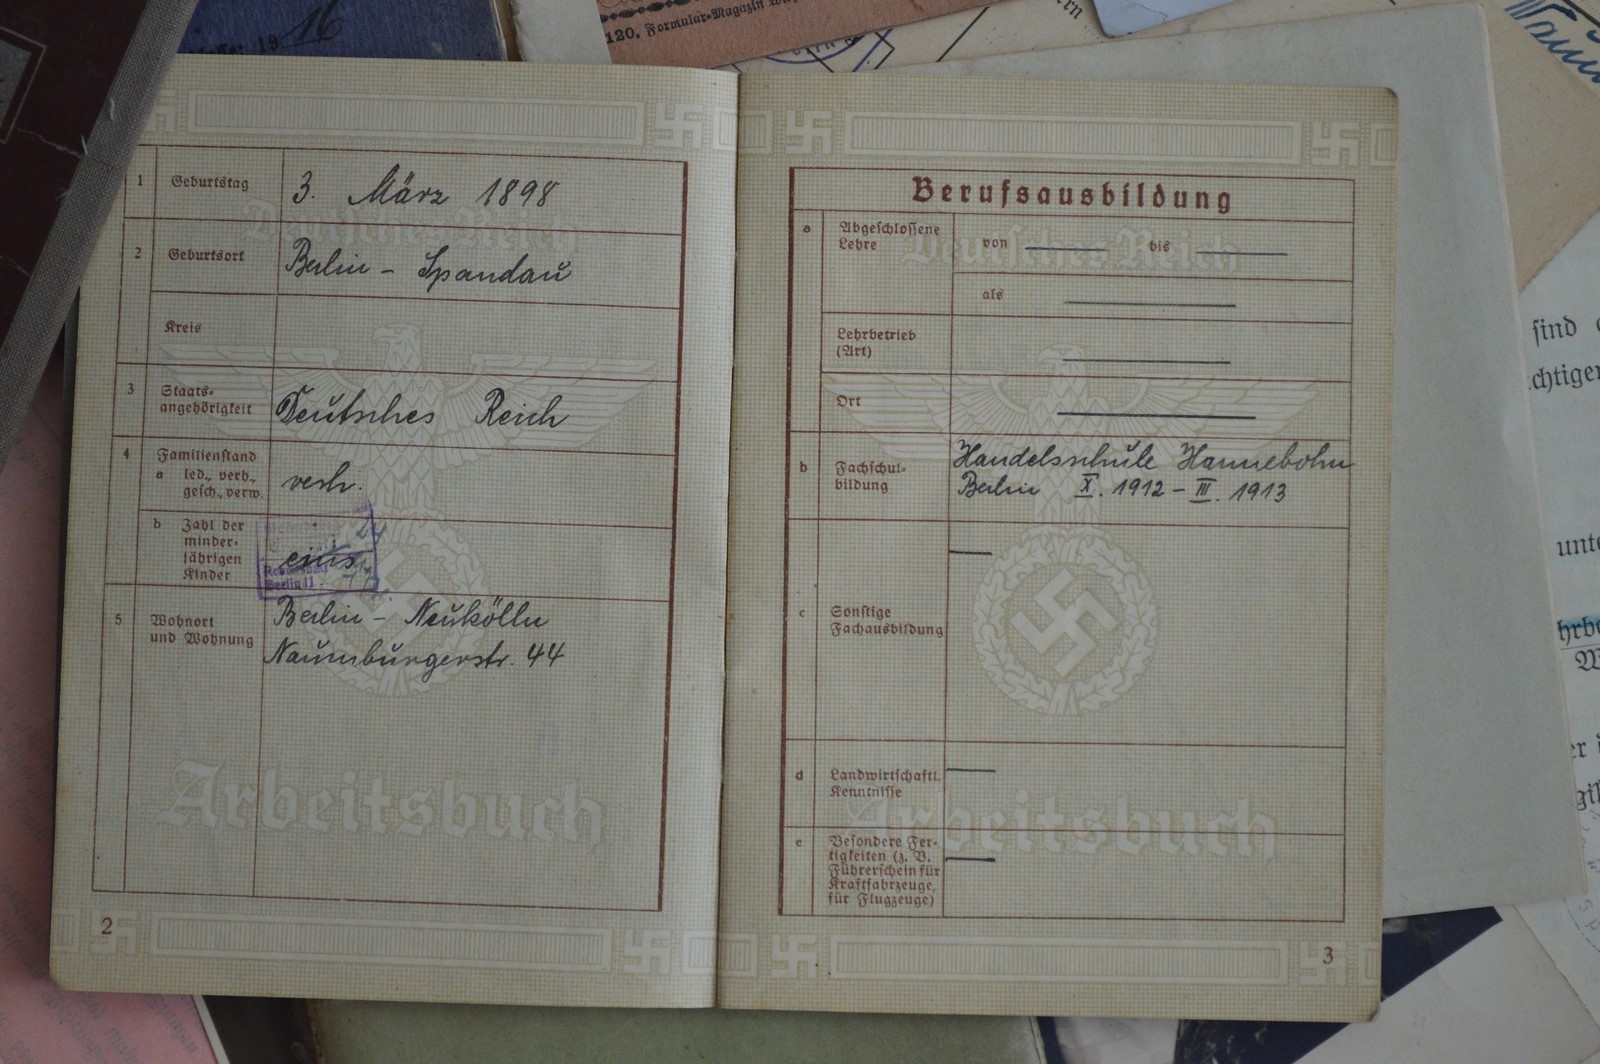 19 16
120. Formular-Magazin
1 Geburtstag 3. März 1898
Deutsches Reich
2 Geburtsort Berlin - Spandau
Kreis
3 Staats-
angehörigkeit Deutsches Reich
4 Familienstand
a led., verh.,
gesch., verw. verh.
b Zahl der
minder-
jährigen
Kinder eins
Berlin
5 Wohnort
und Wohnung Berlin - Neukölln
Naumburgerstr. 44
Arbeitsbuch
2
Berufsausbildung
a Abgeschlossene
Lehre von bis
Deutsches Reich
als
Lehrbetrieb
(Art)
Ort
b Fachschul-
bildung Handelsschule Hannebohn
Berlin X. 1912 - III. 1913
c Sonstige
Fachausbildung
d Landwirtschaftl.
Kenntnisse
Arbeitsbuch
e Besondere Fer-
tigkeiten (z. B.
Führerschein für
Kraftfahrzeuge,
für Flugzeuge)
3
sind
chtiger
unte